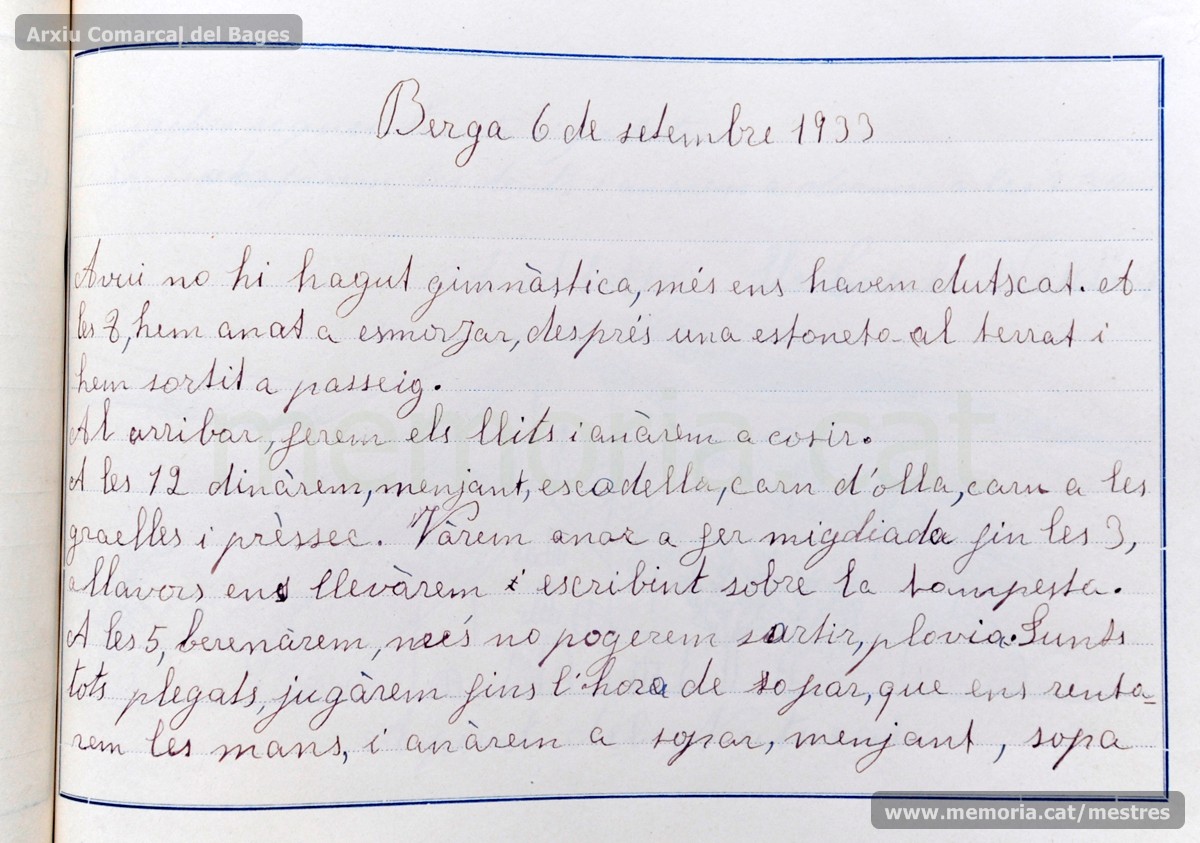 Arxiu Comarcal del Bages
Berga 6 de setembre 1933
Avui no hi hagut gimnàstica, més ens havem dutxcat. A
les 8, hem anat a esmorzar, després una estoneta al terrat i
hem sortit a passeig.
Al arribar, ferem els llits i anàrem a cosir.
A les 12 dinàrem, menjant, escodella, carn d'olla, carn a les
graelles i prèssec. Vàrem anar a fer migdiada fin les 3,
allavors ens llevàrem i escribint sobre la tampesta.
A les 5, berenàrem, més no pogerem sortir, plovia. Junts
tots plegats, jugàrem fins l'hora de sopar, que ens renta-
rem les mans, i anàrem a sopar, menjant, sopa
memoria.cat
www.memoria.cat/mestres